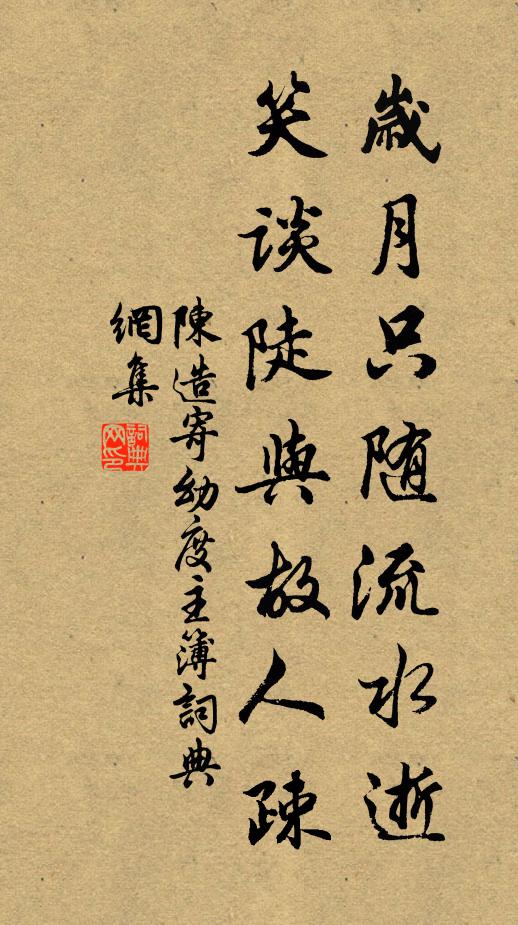 歲月只随流水逝
笑談陡與故人疎
陳造寄幼度主簿詞典
網集
詞典網印